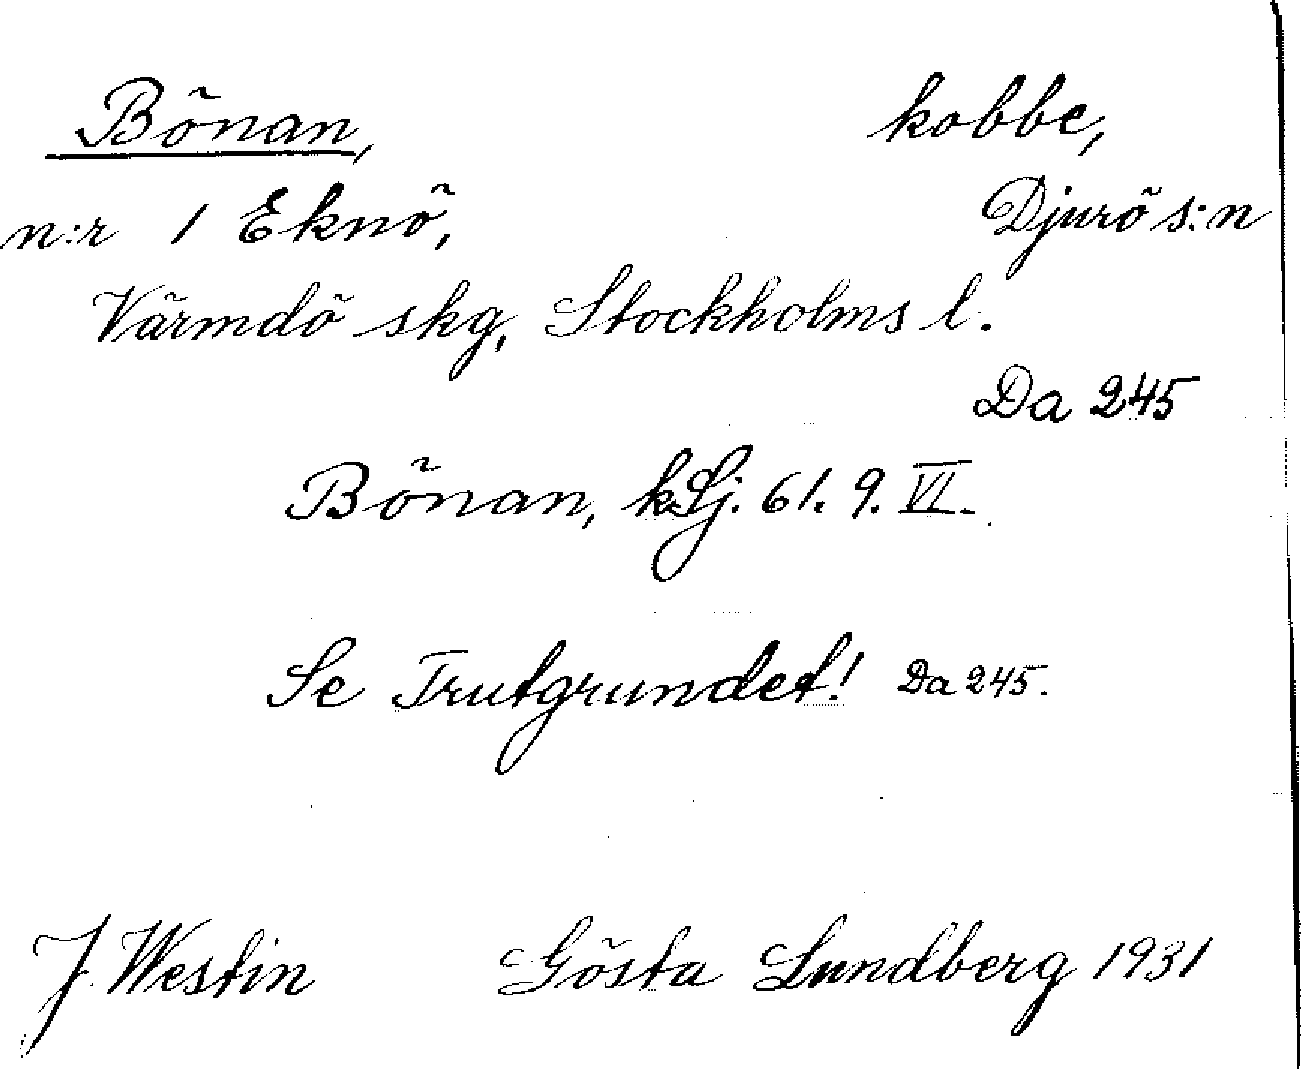 Bönan, kobbe,
n:r 1 Eknö, Djurö s:n
Värmdö skg, Stockholms l.
Da 245
Bönan, k. Sj. 61. 9. VI.
Se Trutgrundet! Da 245.
J. Westin Gösta Lundberg 1931